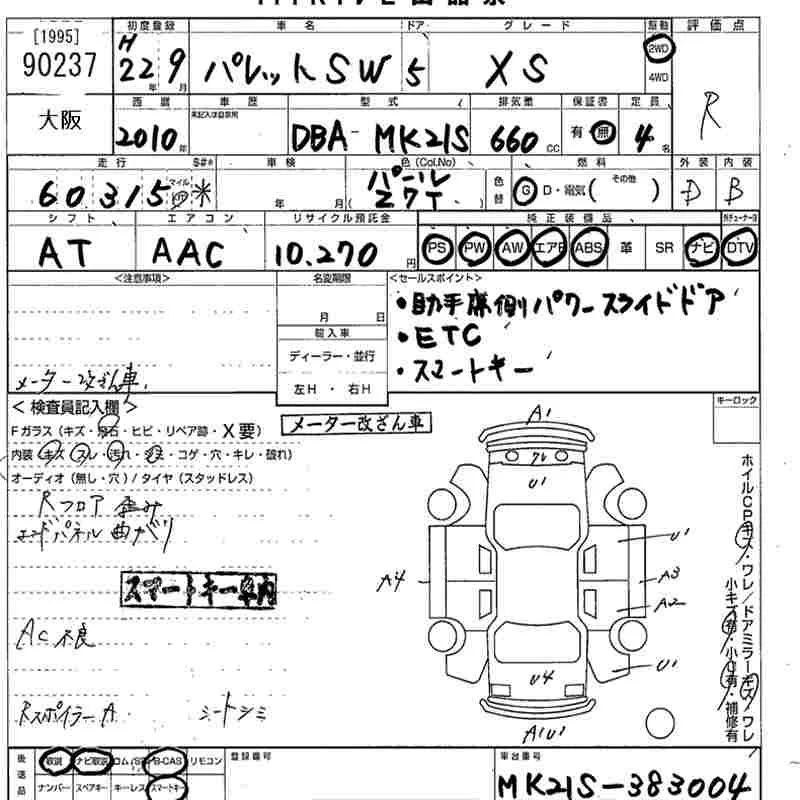 [1995]
90237
大阪
初度登録
車名
ドア
グレード
駆動
評価点
H 22年 9月
パレットSW
5
XS
2WD
4WD
R
西暦
車歴
型式
排気量
保証書
定員
2010年
DBA-MK21S
660cc
有・無
4名
走行
S#*
車検
色(Col.No)
色替
燃料
外装
内装
60315
マイル
*
年 月
パール
Z7T
G・D・電気( その他 )
D
B
シフト
エアコン
リサイクル預託金
純正装備品
AT
AAC
10,270円
PS PW AW エアB ABS 革 SR ナビ DTV
<注意事項>
メーター改ざん車
名変期限
月 日
輸入車
ディーラー・並行
左H・右H
<セールスポイント>
・助手席側パワースライドドア
・ETC
・スマートキー
<検査員記入欄>
メーター改ざん車
キーロック
Fガラス(キズ・飛石・ヒビ・リペア跡・X要)
内装(キズ・スレ・汚れ・シミ・コゲ・穴・キレ・破れ)
オーディオ(無し・穴)/タイヤ(スタッドレス)
Rフロア 歪み
エンドパネル 曲がり
スマートキー車内
AC不良
RスポイラーA シートシミ
A1
ワレ
U1
U1
A4
A3
A2
U1
U4
A1U1
ホイルCPキズ・ワレ/ドアミラーキズ/ワレ
小キズ有・小U有・補修有
後送品
取説 ナビ取説 B-CAS リモコン
ナンバー スペアキー キーレス スマートキー
登録番号
車台番号
MK21S-383004